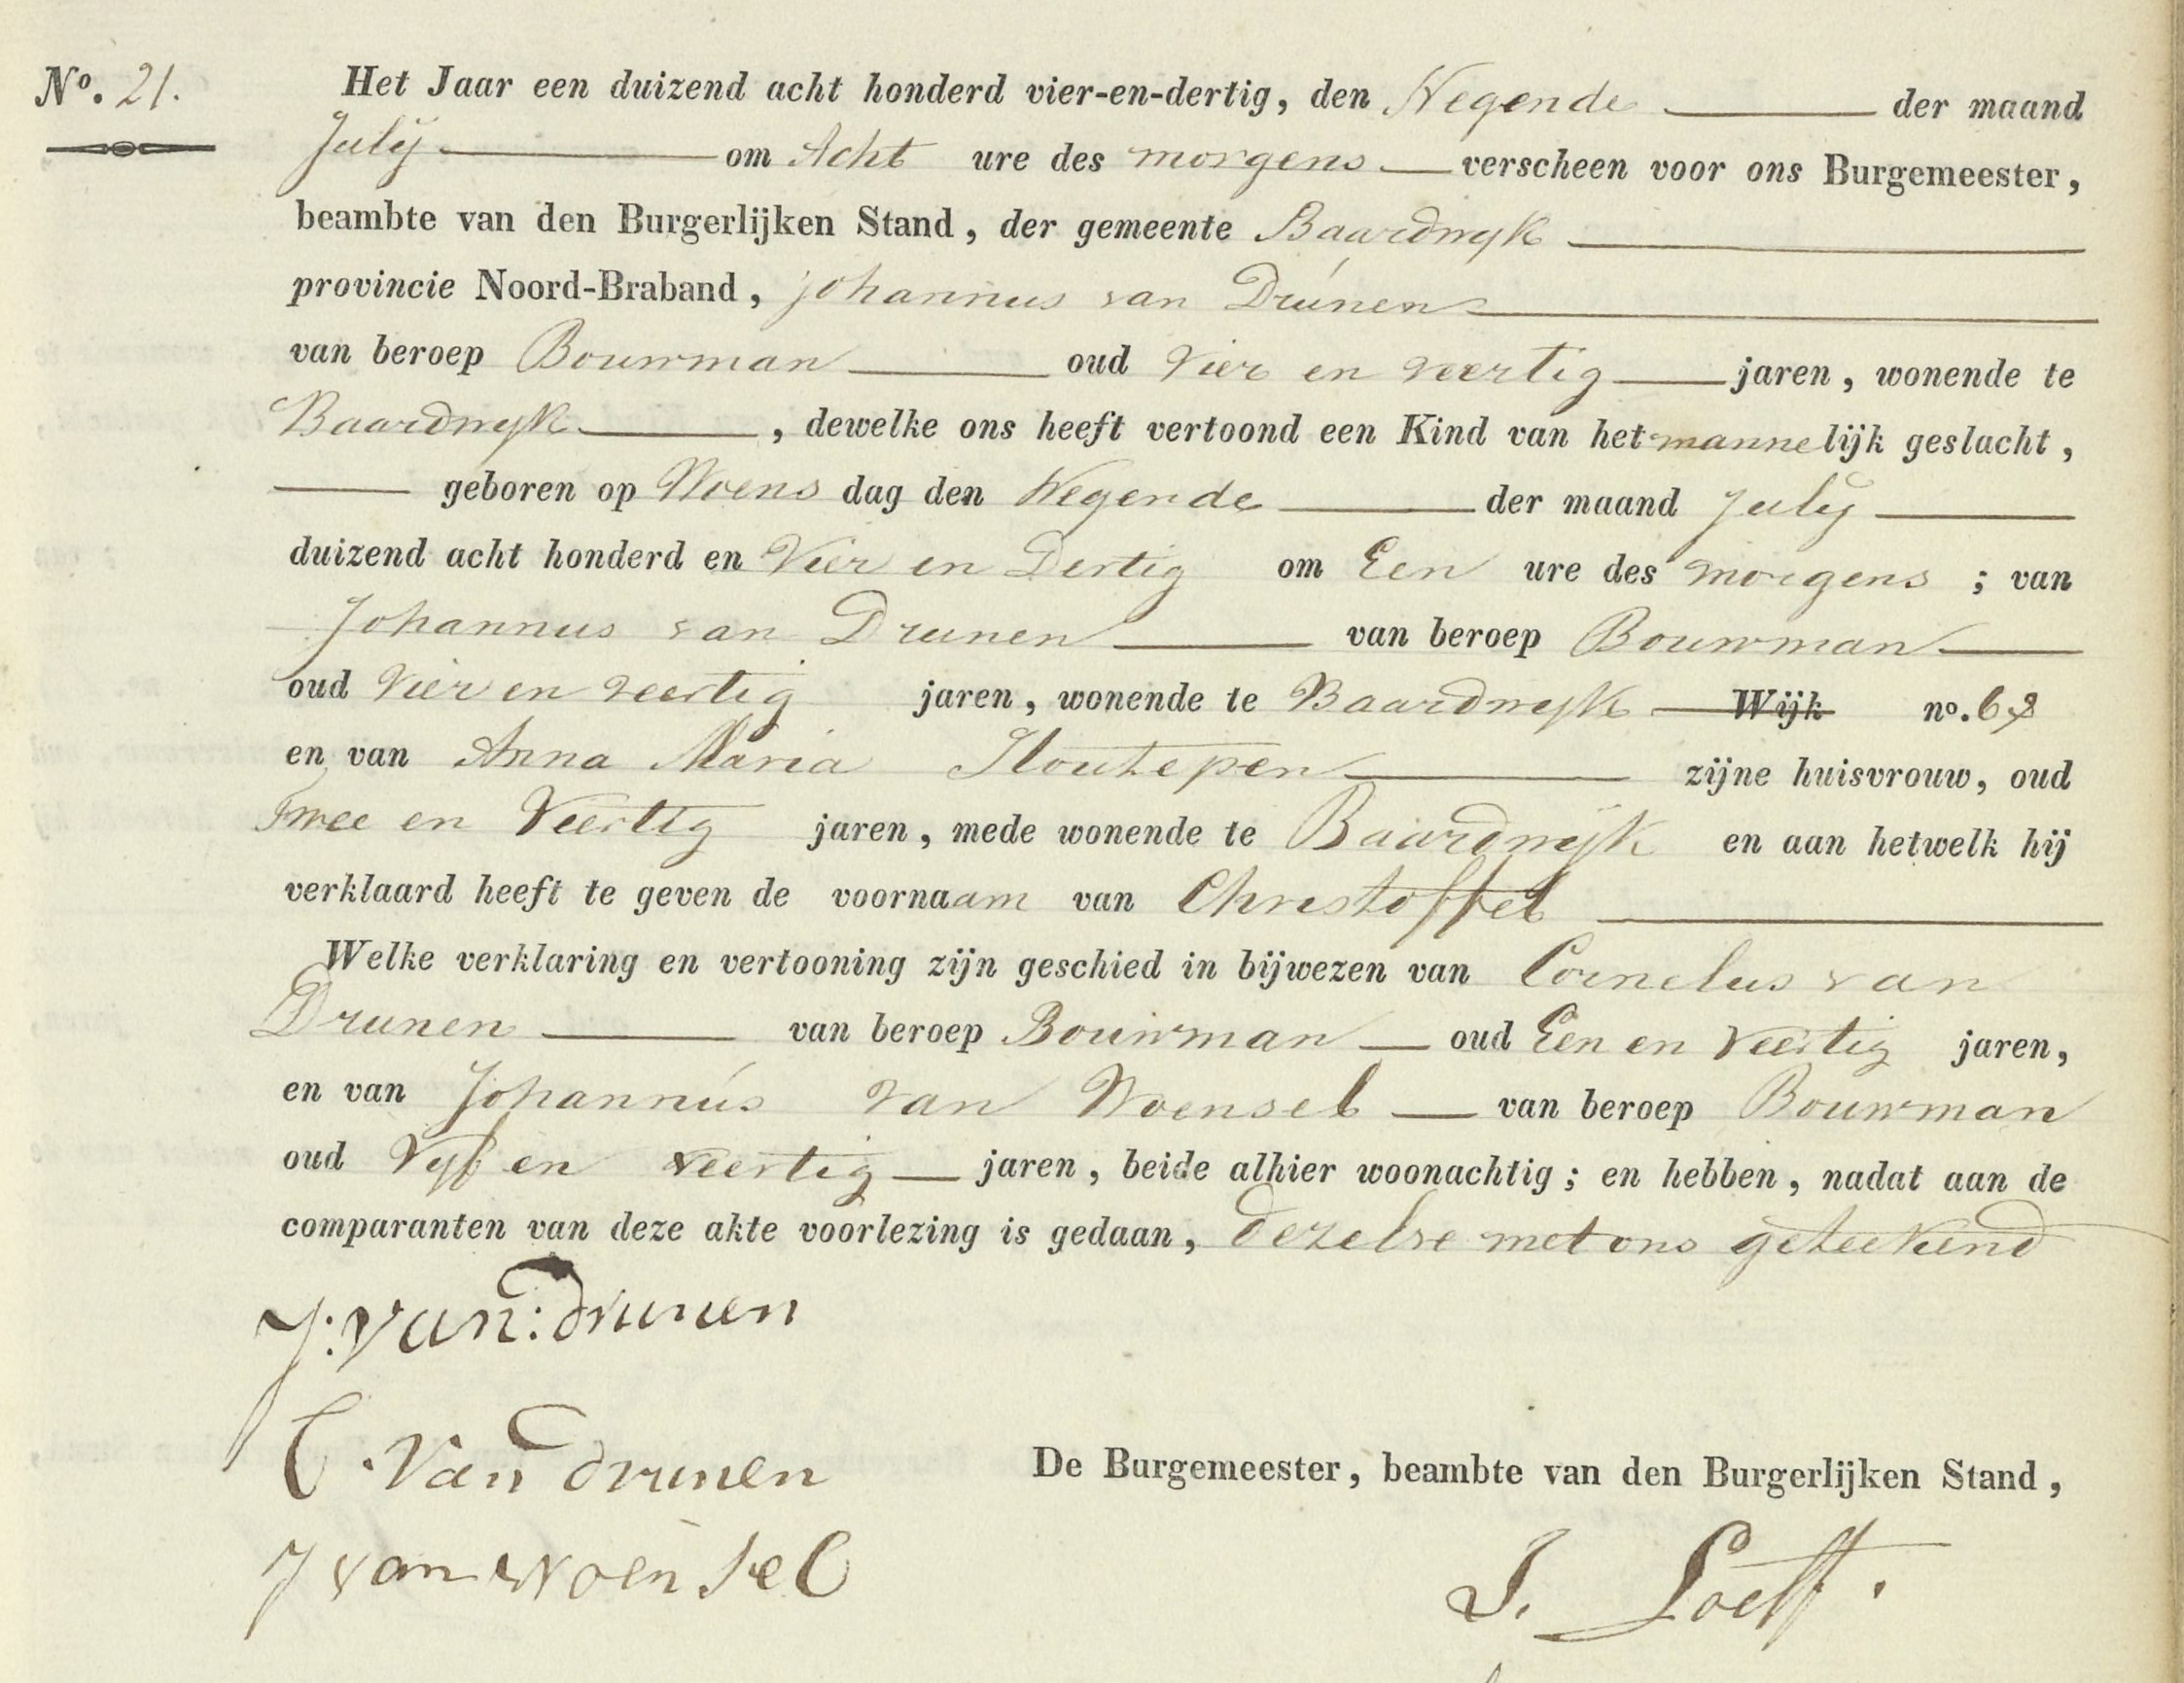 No. 21.
Het Jaar een duizend acht honderd vier-en-dertig, den Negende der maand
July om Acht ure des morgens verscheen voor ons Burgemeester,
beambte van den Burgerlijken Stand, der gemeente Baardwyk
provincie Noord-Braband, Johannus van Drunen
van beroep Bouwman oud Vier en veertig jaren, wonende te
Baardwyk, dewelke ons heeft vertoond een Kind van het mannelijk geslacht,
geboren op Woens dag den Negende der maand July
duizend acht honderd en Vier en Dertig om Een ure des morgens; van
Johannus van Drunen van beroep Bouwman
oud Vier en veertig jaren, wonende te Baardwyk Wijk no. 68
en van Anna Maria Houtepen zijne huisvrouw, oud
Twee en Veertig jaren, mede wonende te Baardwijk en aan hetwelk hij
verklaard heeft te geven de voornaam van Christoffel
Welke verklaring en vertooning zijn geschied in bijwezen van Cornelus van
Drunen van beroep Bouwman oud Een en Veertig jaren,
en van Johannus van Woensel van beroep Bouwman
oud Vyf en veertig jaren, beide alhier woonachtig; en hebben, nadat aan de
comparanten van deze akte voorlezing is gedaan, dezelve met ons geteekend
J: van: drunen
C. van drunen
De Burgemeester, beambte van den Burgerlijken Stand,
J van woensel
J. Loeff.